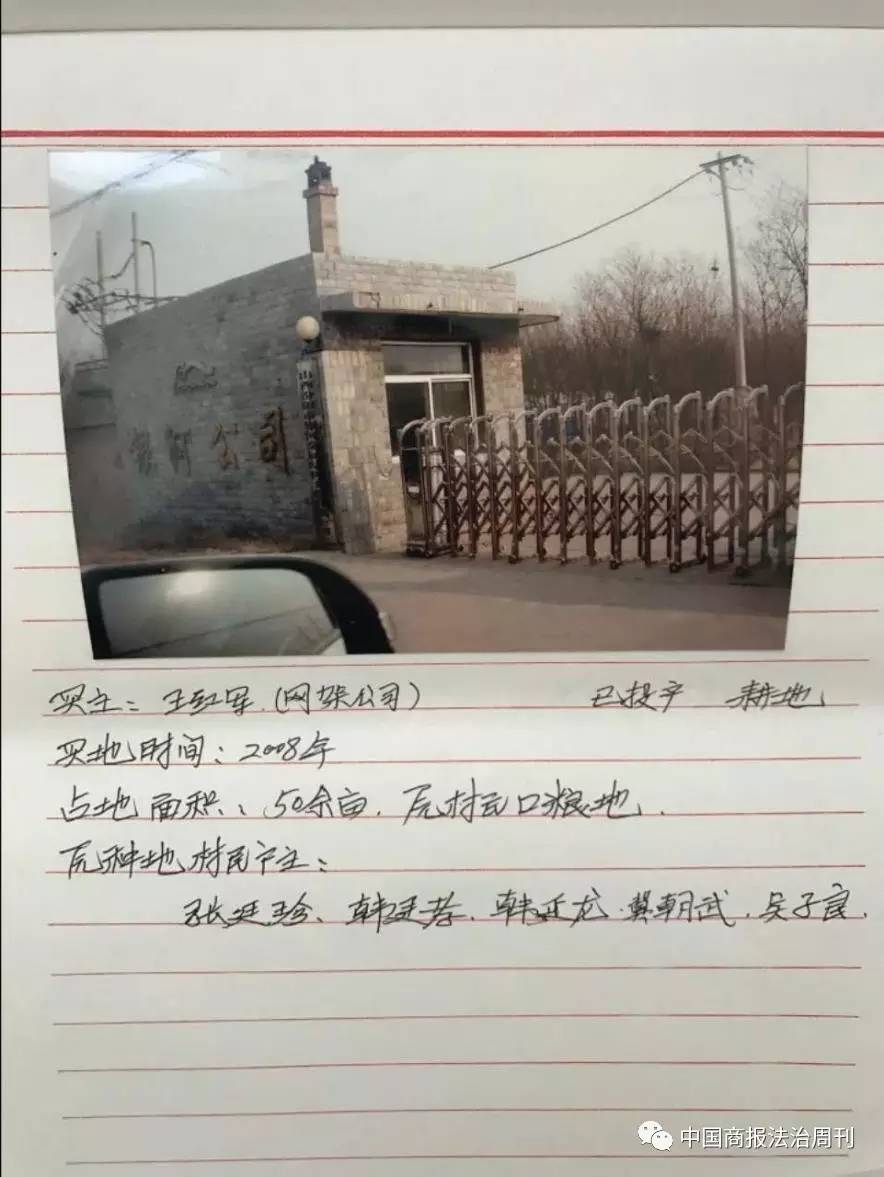 银河公司
买主：王红军（网架公司） 已投产 耕地
买地时间：2008年
占地面积：50余亩．原村民口粮地．
原种地村民户主：
张廷珍、韩廷孝．韩廷龙．冀朝武．吴子良．
中国商报法治周刊